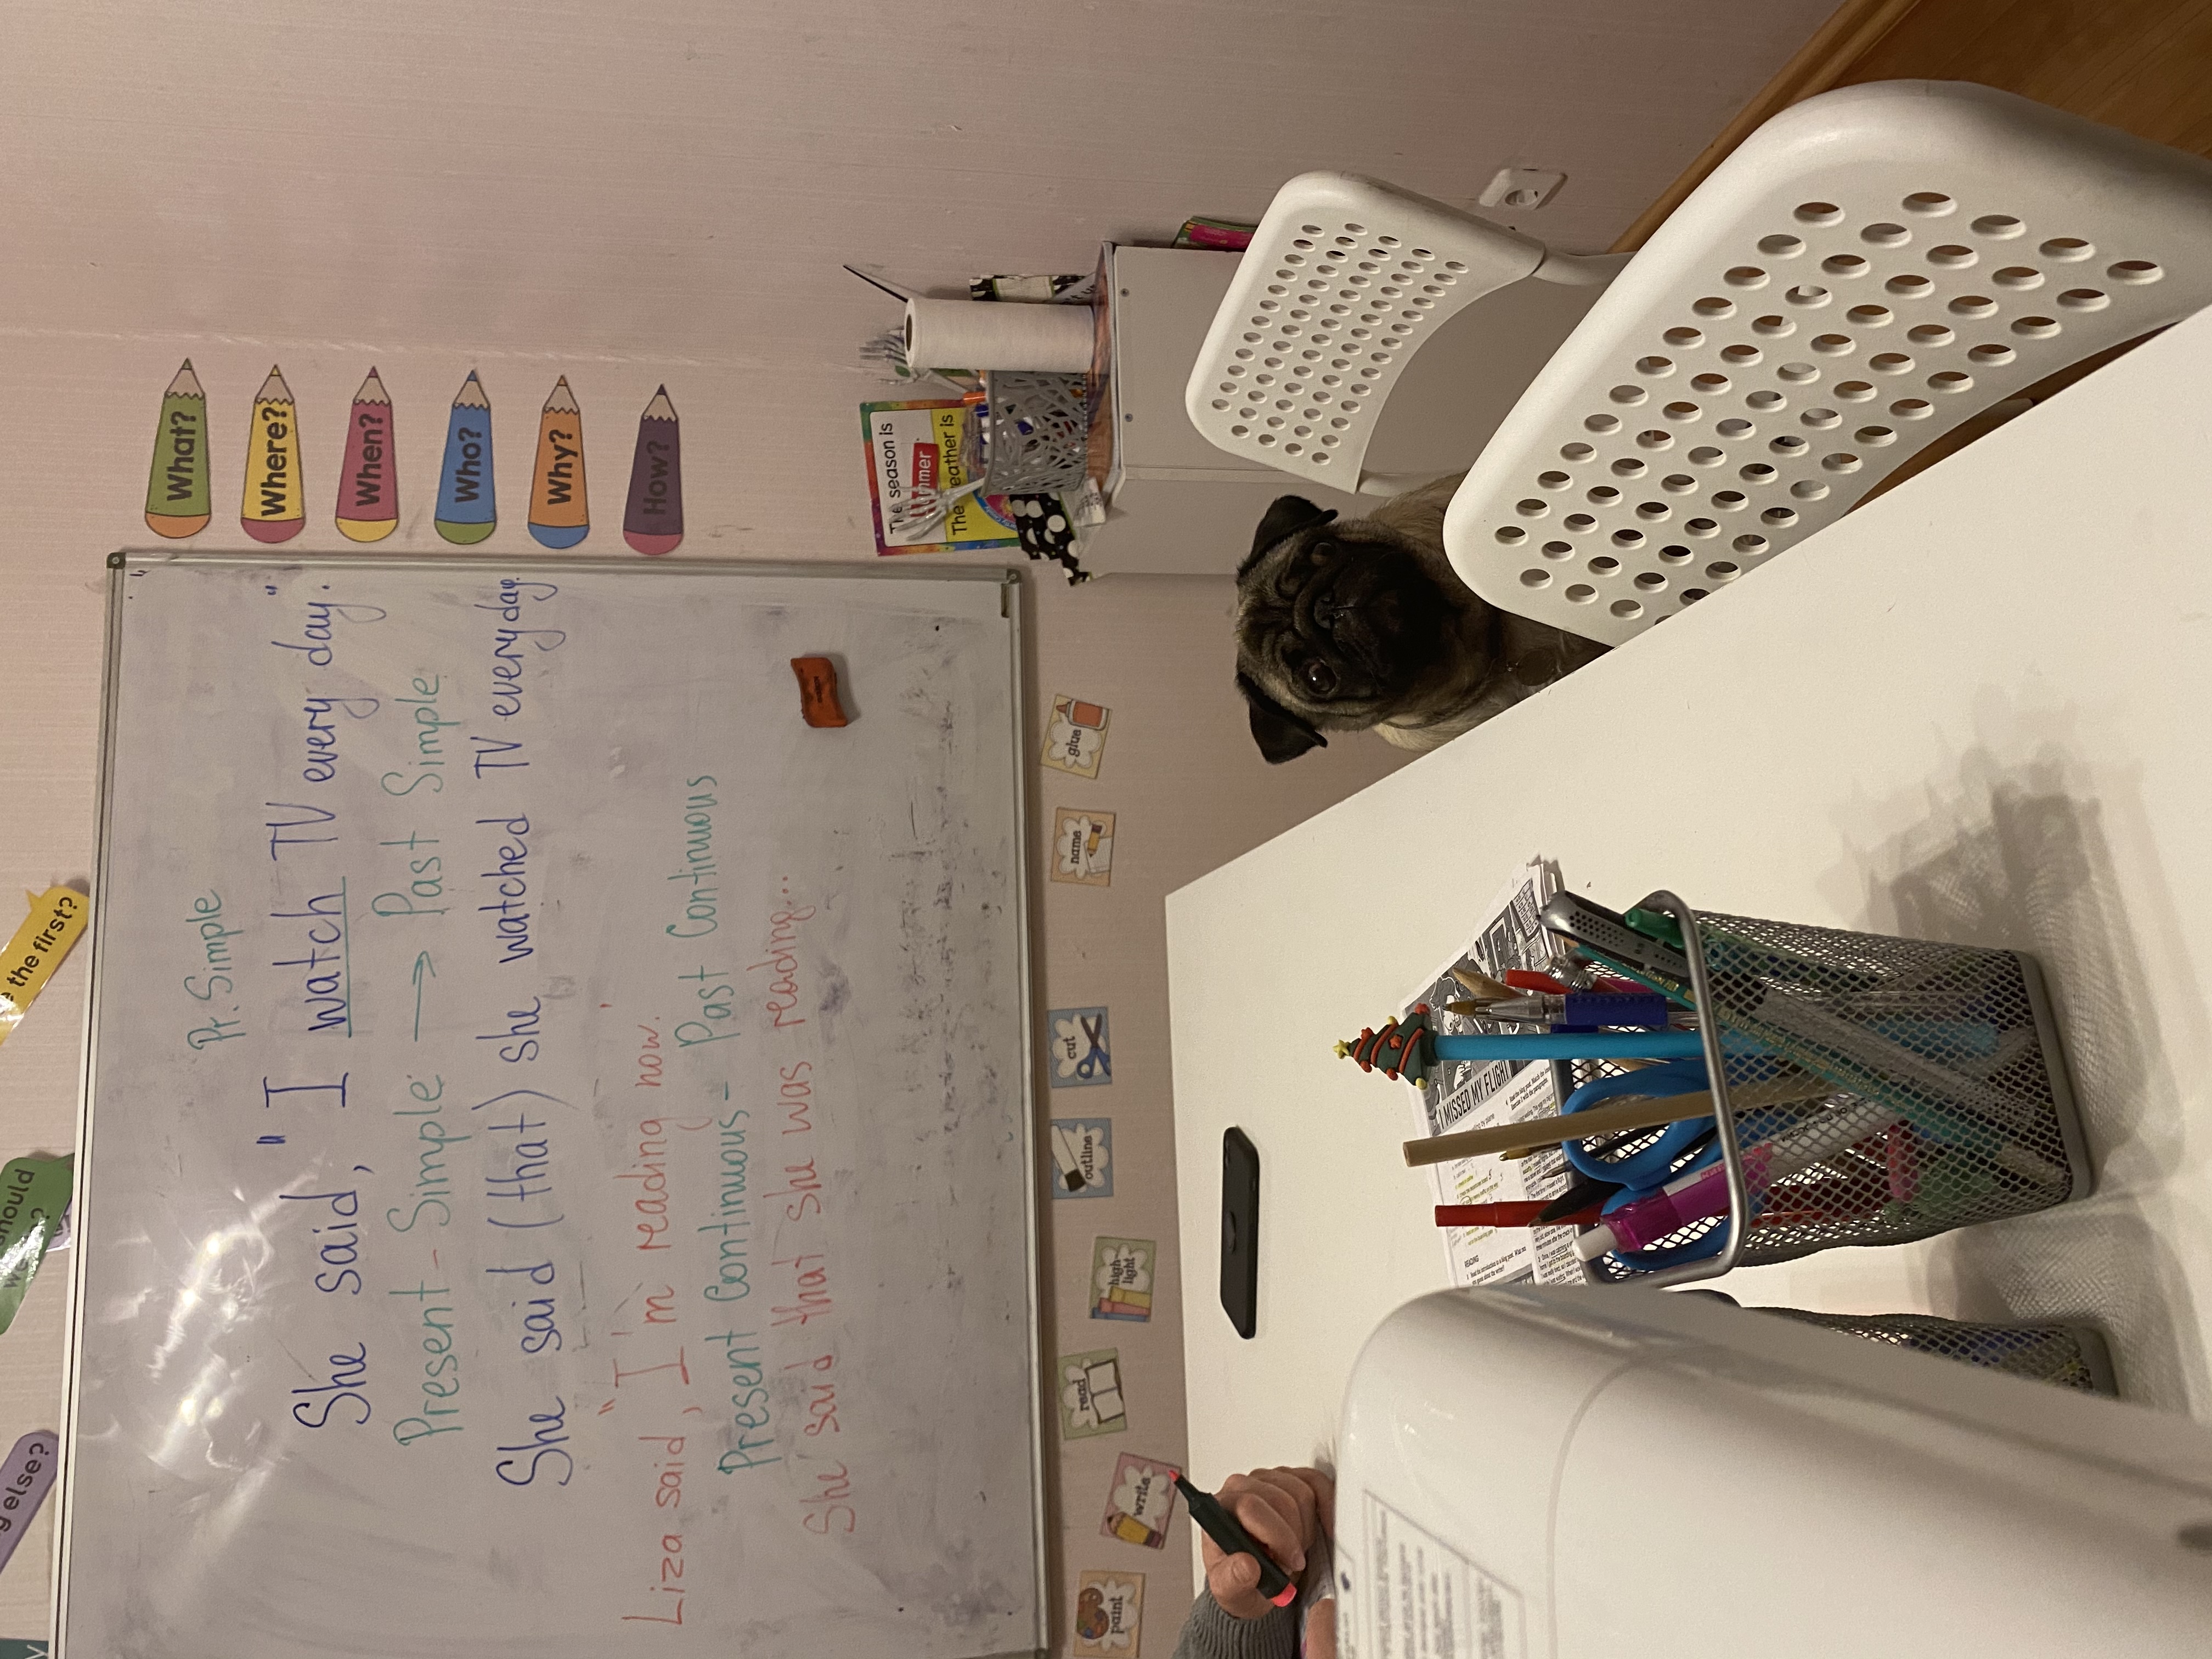 else?
should
we
the first?
Pr. Simple
She said, "I watch TV every day."
Present - Simple → Past Simple
She said (that) she watched TV everyday.
Liza said, "I'm reading now."
Present Continuous - Past Continuous
She said that she was reading...
What?
Where?
When?
Who?
Why?
How?
The season is
The weather is
paint
write
read
high-
light
outline
cut
name
glue
I MISSED MY FLIGHT